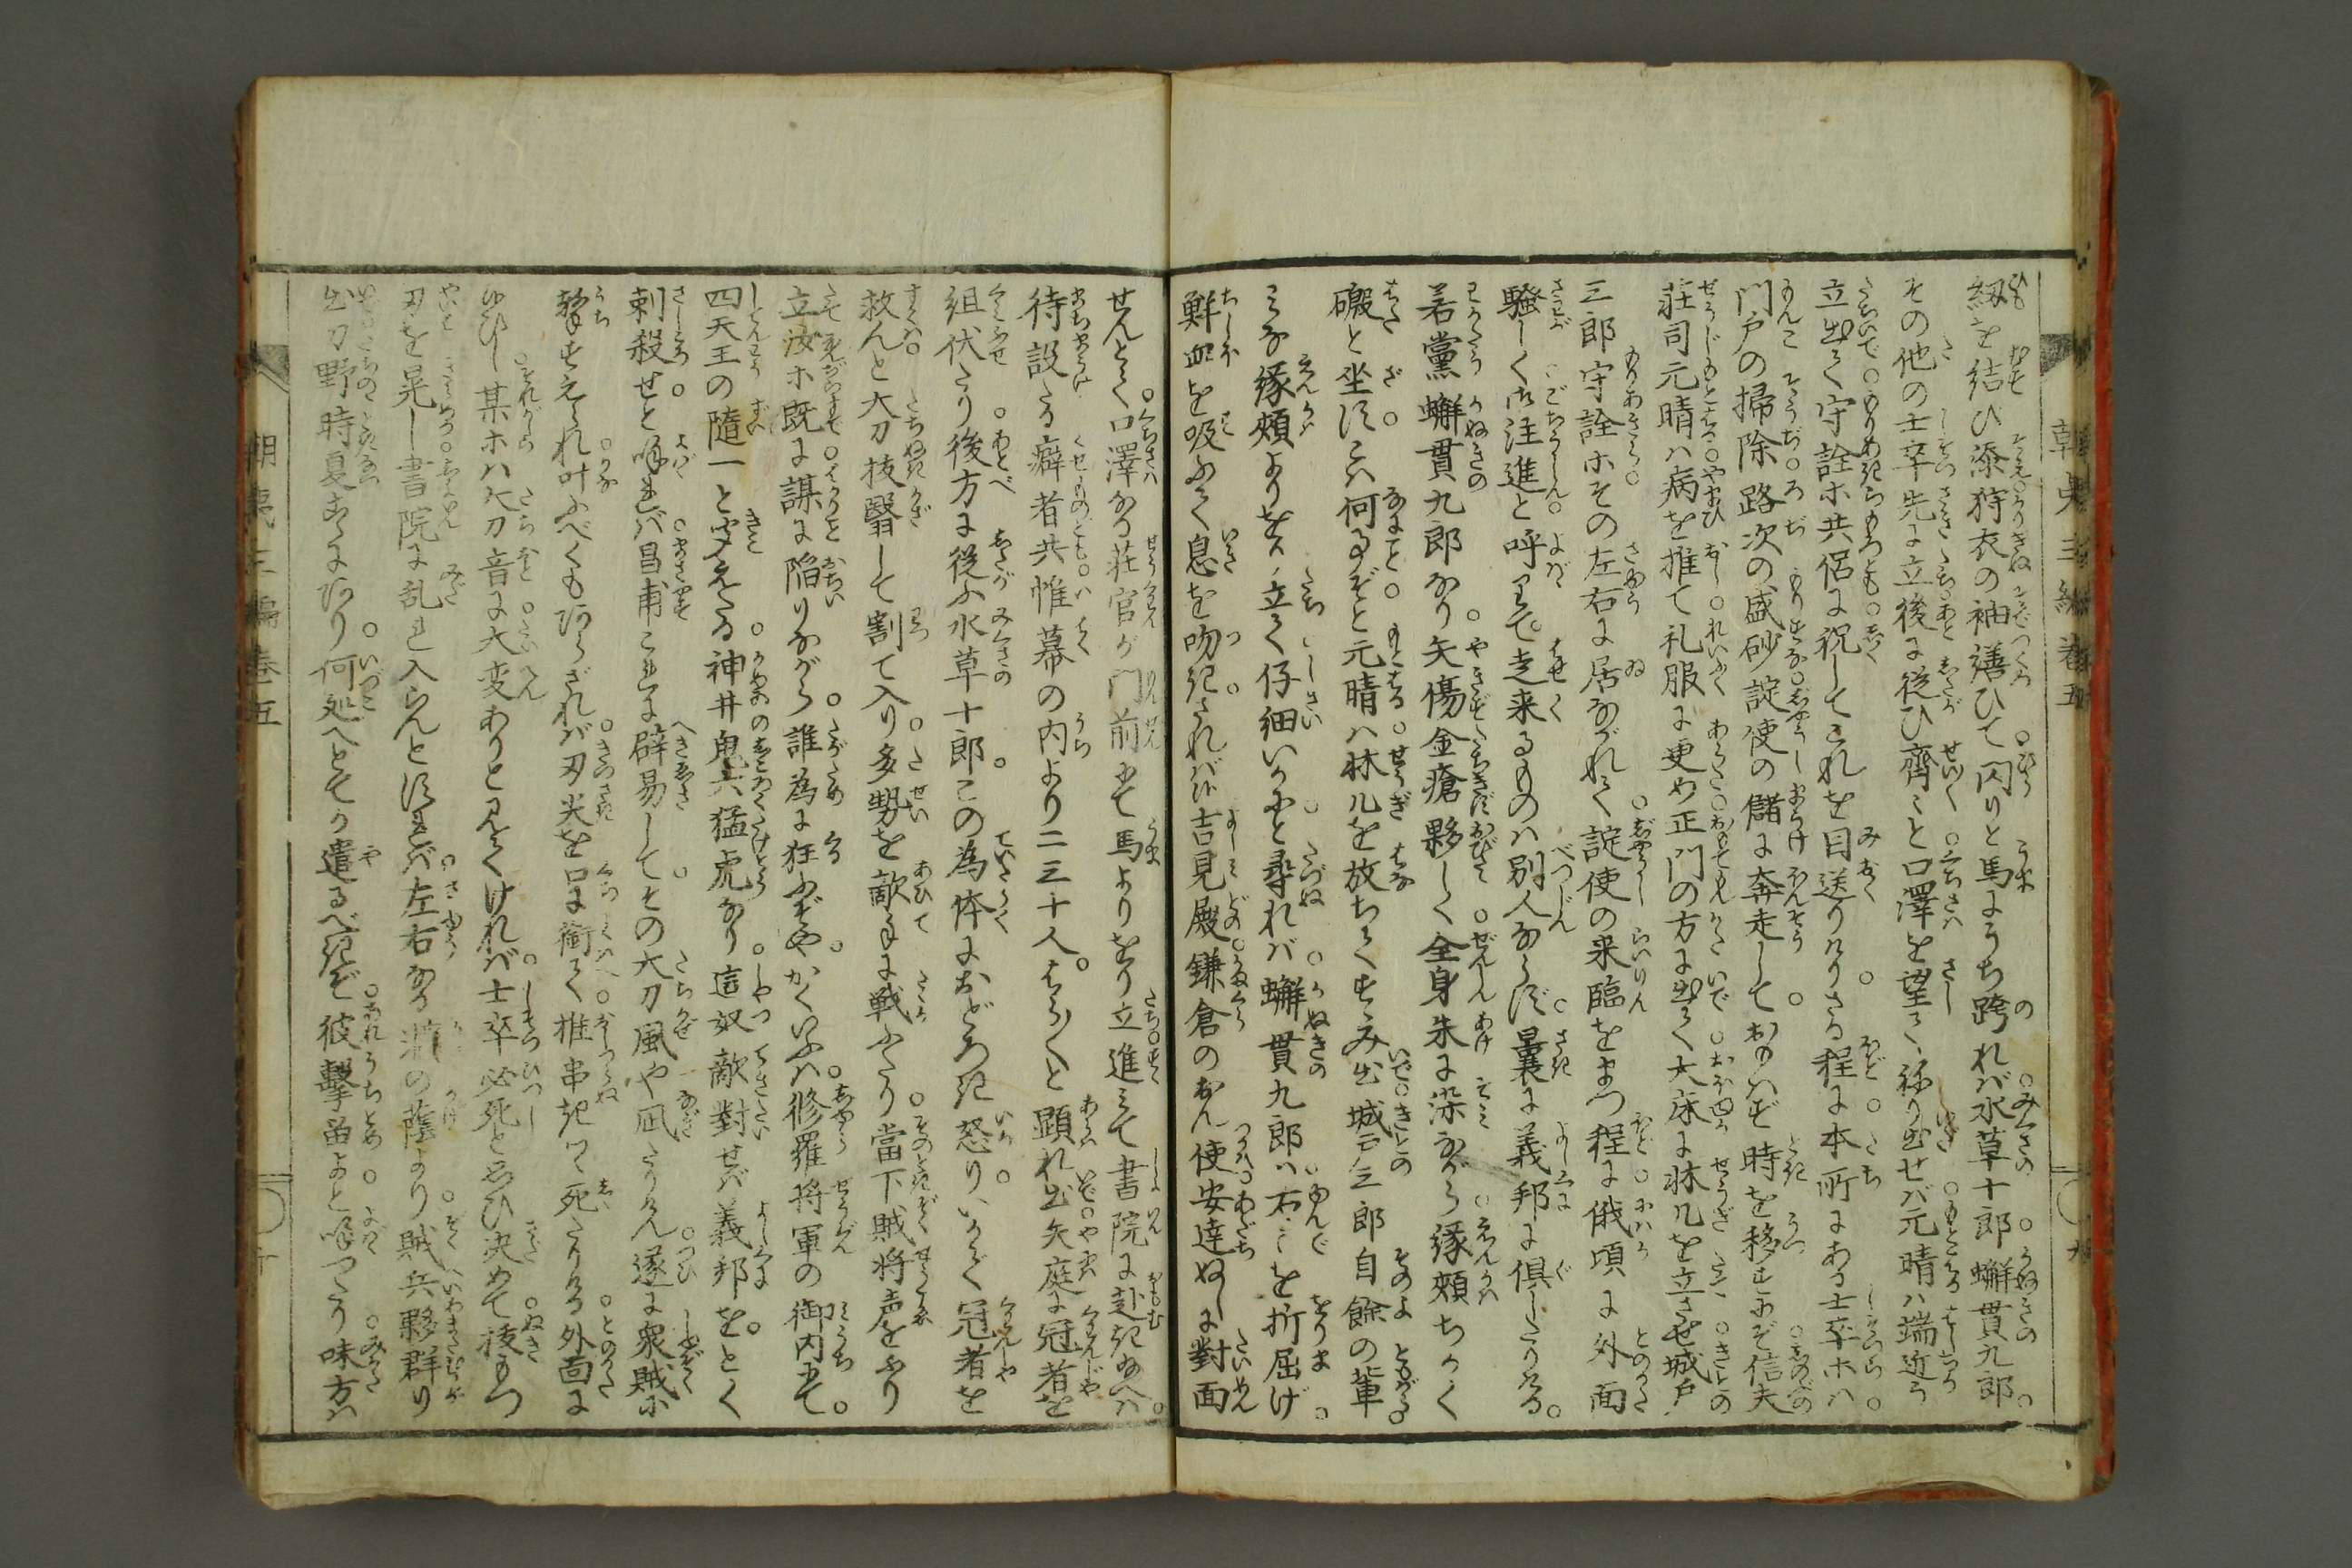 紐を結び添狩衣の袖繕ひて閃りと馬にうち跨れば水草十郎蠏貫九郎
その他の士卒先に立後に従ひ齊々と口澤を望て辞り出せば元晴は端近う
立出て守詮ホ共侶に祝してこれを目送りけりさる程に本所にある士卒ホハ
門戸の掃除路次の盛砂諚使の儲に奔走しておもはず時を移すにぞ信夫
荘司元晴ハ病を推て礼服に更め正門の方に出て大床に牀几を立させ城戸
三郎守詮ホその左右に居ながれて諚使の来臨をまつ程に俄頃に外面
騒しく御注進と呼りて走来るものハ別人ならず曩に義邦に倶したりける
若黨蠏貫九郎なり矢傷金瘡夥しく全身朱に染ながら縁頬ちかく
礑と坐すこハ何事ぞと元晴ハ牀几を放ちてすゝみ出城戸三郎自餘の輩
みな縁頬よりを立て仔細いかにと尋れバ蠏貫九郎ハ右を折屈げ
鮮血を吸ふて息を吻きされバ候吉見殿鎌倉のおん使安達ぬしに對面
せんとて口澤なる荘官が門前にて馬よりをり立進みて書院に赴き給へハ
待設たる癖者共帷幕の内より二三十人はら〳〵と顕れ出矢庭に冠者を
組伏たり後方に従ふ水草十郎この為体におどろき怒りいかで冠者を
救んと大刀抜翳して割て入り多勢を敵手に戦ふたり當下賊将声をふり
立汝ホ既に謀に陥りながら誰為に狂ふぞやかくいふハ修羅将軍の御内にて
四天王の隨一と聞えたる神井鬼六猛虎なり這奴敵對せバ義邦をとく
刺殺せと喚れバ昌甫これに辟易してその大刀風や凪たりけん遂に衆賊に
撃すえられ叶ふべくもあらざれバ刃尖を口に銜て推串きつゝ死たりける外面に
ゆひし某ホハ大刀音に大変ありと見てけれバ士卒必死と思ひ決めて抜もつ
刃を晃し書院に乱れ入らんとすれバ左右なる蔭より賊兵夥群り
出刀野時夏こゝにあり何処へとてか遣るべきぞ彼撃畄よと喚つたり味方ハ
朝夷三編巻五
朝夷三編巻五
九
十